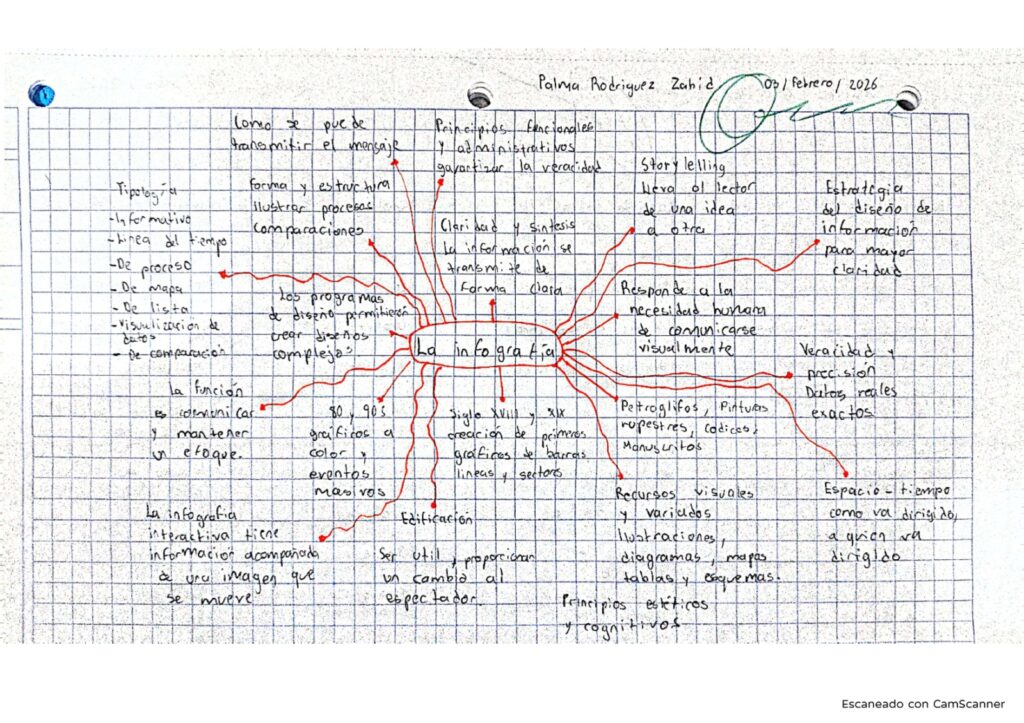 Palma Rodriguez Zahid 03/Febrero/2026
Como se puede
transmitir el mensaje
Principios funcionales
y administrativos
garantizar la veracidad
Storytelling
lleva al lector
de una idea
a otra
Estrategia
del diseño de
información
para mayor
claridad
Tipología
-Informativo
-Linea del tiempo
-De proceso
-De mapa
-De lista
-Visualización de
datos
-De comparación
Forma y estructura
Ilustrar procesos
comparaciones
Claridad y sintesis
La información se
transmite de
forma clara
Los programas
de diseño permitieron
crear diseños
complejos
Responde a la
necesidad humana
de comunicarse
visualmente
La infografía
Veracidad y
precision
Datos reales
exactos
La función
es comunicar
y mantener
un efoque.
80 y 90s
gráficos a
color y
eventos
masivos
Siglo XVIII y XIX
creación de primeros
gráficos de barras
lineas y sectors
Petroglifos, Pinturas
rupestres, codices,
Manuscritos
La infografia
interactiva tiene
información acompañada
de una imagen que
se mueve
Edificación
Ser util, proporcionan
un cambio al
espectador.
Recursos visuales
y variados
Ilustraciones,
diagramas, mapas
tablas y esquemas.
Principios estéticos
y cognitivos
Espacio-tiempo
como va dirigido,
a quien va
dirigido
Escaneado con CamScanner